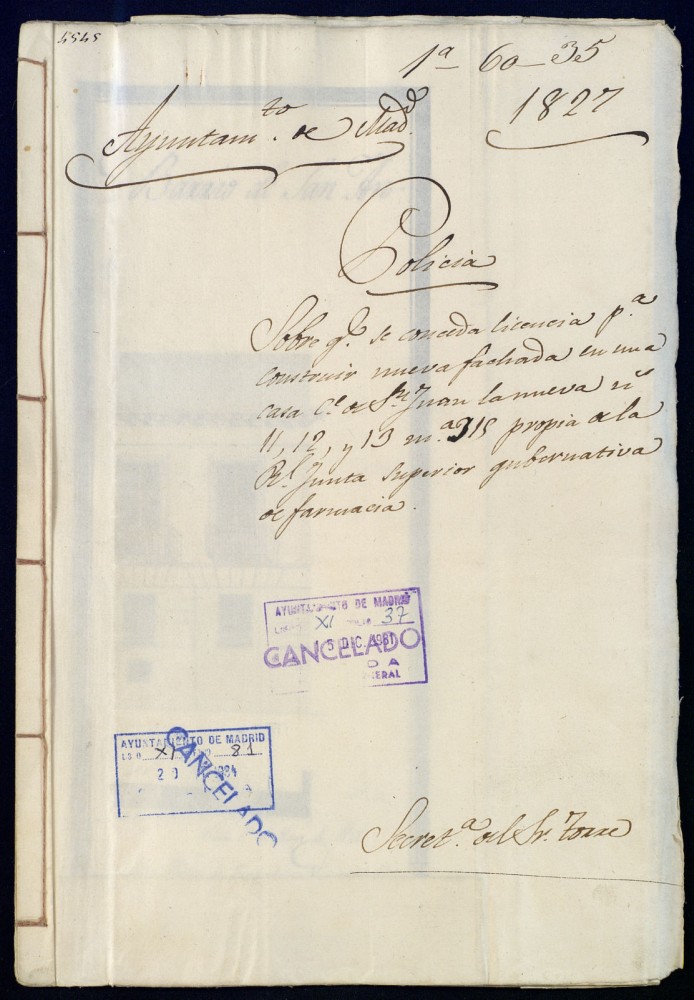 4545
1ª 60-35
Ayuntam.to de Mad.d
1827
Barrio de San
Policia
Sobre q.e se conceda licencia p.a
construir nueva fachada en una
casa C.e de Sn Juan la nueva nº
11, 12, y 13 m.a 315 propia de la
Rl. Junta superior gubernativa
de farmacia.
AYUNTAMIENTO DE MADRID
XI 37
5 DIC. 1981
CANCELADO
AYUNTAMIENTO DE MADRID
XI 81
CANCELADO
Secret.a del Sr. Torre